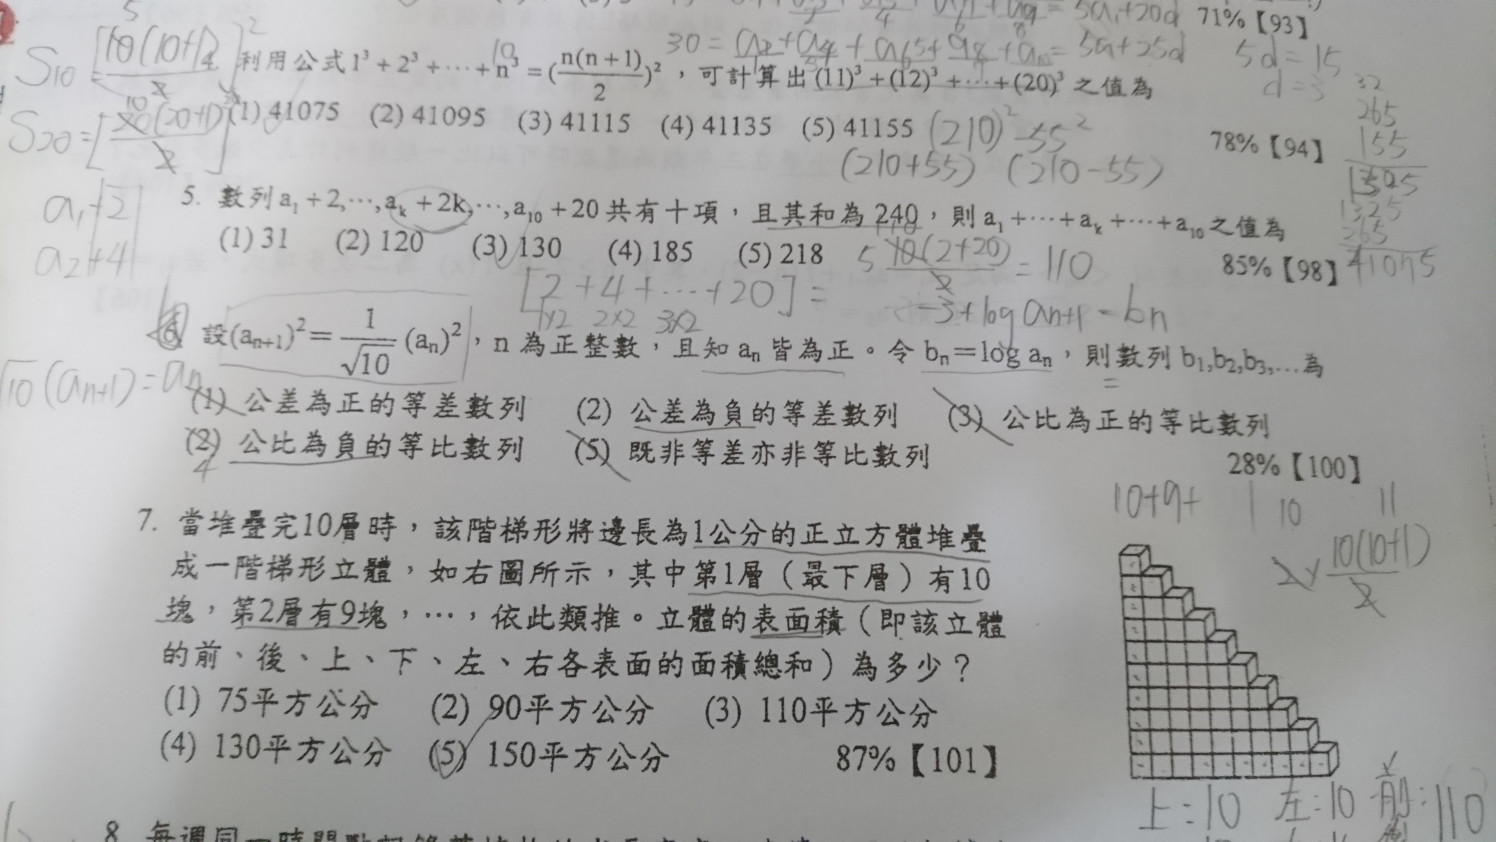 71%【93】
利用公式1³+2³+⋯+n³=(n(n+1)/2)²,可計算出(11)³+(12)³+⋯+(20)³之值為
(1) 41075 (2) 41095 (3) 41115 (4) 41135 (5) 41155
78%【94】
(210)²-55²
(210+55) (210-55)
30=a₂+a₄+a₆+a₈+a₁₀=5a+25d
5d=15
d=3
S₁₀=[10(10+1)/2]²
S₂₀=[20(20+1)/2]²
265
155
1325
1325
265
41075
5. 數列a₁+2,⋯,aₖ+2k,⋯,a₁₀+20共有十項,且其和為240,則a₁+⋯+aₖ+⋯+a₁₀之值為
(1) 31 (2) 120 (3) 130 (4) 185 (5) 218
85%【98】
a₁+2
a₂+4
5 10(2+20)/2=110
[2+4+⋯+20]=
1×2 2×2 3×2
-3+log aₙ₊₁-bₙ
6. 設(aₙ₊₁)²=1/√10(aₙ)²,n為正整數,且知aₙ皆為正。令bₙ=log aₙ,則數列b₁,b₂,b₃,…為
√10(aₙ₊₁)=aₙ
(1) 公差為正的等差數列 (2) 公差為負的等差數列 (3) 公比為正的等比數列
(2) 公比為負的等比數列 (5) 既非等差亦非等比數列
4
28%【100】
7. 當堆疊完10層時,該階梯形將邊長為1公分的正立方體堆疊
成一階梯形立體,如右圖所示,其中第1層(最下層)有10
塊,第2層有9塊,⋯,依此類推。立體的表面積(即該立體
的前、後、上、下、左、右各表面的面積總和)為多少?
(1) 75平方公分 (2) 90平方公分 (3) 110平方公分
(4) 130平方公分 (5) 150平方公分
87%【101】
10+9+ 1 10 11
2×10(10+1)/2
上:10 左:10 前:110
8. 每週同一時間